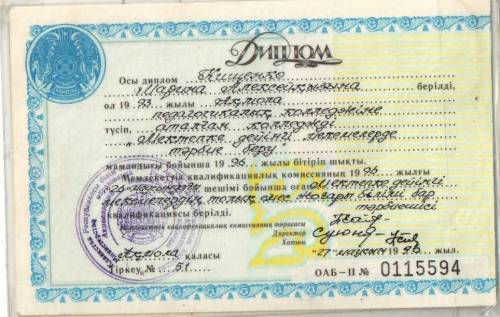 ДИПЛОМ
Осы диплом Тищенко
Марина Алексейқызына берілді,
ол 19 93 жылы Ақмола
педагогикалық колледжіне
түсіп, аталған колледжді
"Мектепке дейінгі мекемелерде
тәрбие беру"
мамандығы бойынша 19 96 жылы бітіріп шықты.
Мемлекеттік квалификациялық комиссияның 19 96 жылғы
шешімі бойынша оған Мектепке дейінгі
мекемелердің
тәрбиешісі
квалификациясы берілді.
Мемлекеттік квалификациялық комиссияның төрағасы
Директор
Хатшы
Ақмола қаласы
"27" маусым 19 96 жыл.
Тіркеу № 51
ОАБ-ІІ № 0115594